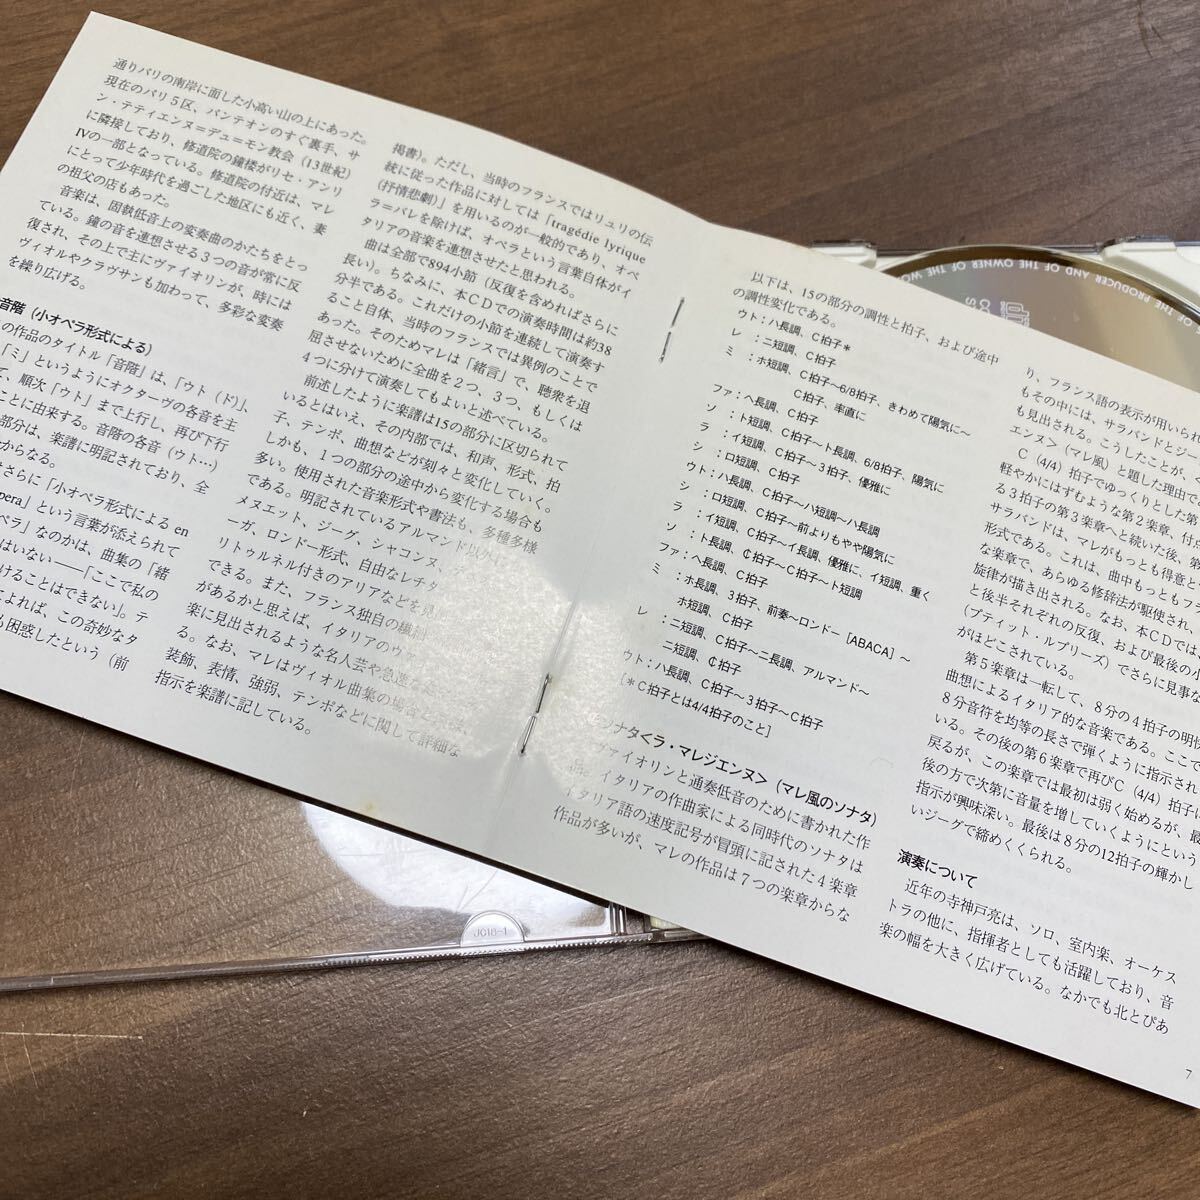 通りパリの南岸に面した小高い山の上にあった。
現在のパリ5区、パンテオンのすぐ裏手、サ
ン・テティエンヌ=デュ=モン教会（13世紀）
に隣接しており、修道院の鐘楼がリセ・アンリ
IVの一部となっている。修道院の付近は、マレ
にとって少年時代を過ごした地区にも近く、妻
の祖父の店もあった。
音楽は、固執低音上の変奏曲のかたちをとっ
ている。鐘の音を連想させる3つの音が常に反
復され、その上で主にヴァイオリンが、時には
ヴィオルやクラヴサンも加わって、多彩な変奏
を繰り広げる。
音階（小オペラ形式による）
の作品のタイトル「音階」は、「ウト（ド）」、
「ミ」というようにオクターヴの各音を主
、順次「ウト」まで上行し、再び下行
ことに由来する。音階の各音（ウト…）
部分は、楽譜に明記されており、全
からなる。
さらに「小オペラ形式による en
pera」という言葉が添えられて
ペラ」なのかは、曲集の「緒
はいない――「ここで私の
けることはできない」。テ
よれば、この奇妙なタ
も困惑したという（前
掲書）。ただし、当時のフランスではリュリの伝
統に従った作品に対しては「tragédie lyrique
（抒情悲劇）」を用いるのが一般的であり、オペ
ラ=バレを除けば、オペラという言葉自体がイ
タリアの音楽を連想させたと思われる。
曲は全部で894小節（反復を含めればさらに
長い）。ちなみに、本CDでの演奏時間は約38
分半である。これだけの小節を連続して演奏す
ること自体、当時のフランスでは異例のことで
あった。そのためマレは「緒言」で、聴衆を退
屈させないために全曲を2つ、3つ、もしくは
4つに分けて演奏してもよいと述べている。
前述したように楽譜は15の部分に区切られて
いるとはいえ、その内部では、和声、形式、拍
子、テンポ、曲想などが刻々と変化していく。
しかも、1つの部分の途中から変化する場合も
多い。使用された音楽形式や書法も、多種多様
である。明記されているアルマンド以外
メヌエット、ジーグ、シャコンヌ、
ーガ、ロンドー形式、自由なレチタ
リトゥルネル付きのアリアなどを見
できる。また、フランス独自の繊細
があるかと思えば、イタリアのヴァ
楽に見出されるような名人芸や急速な
る。なお、マレはヴィオル曲集の場合と
装飾、表情、強弱、テンポなどに関して詳細な
指示を楽譜に記している。
以下は、15の部分の調性と拍子、および途中
の調性変化である。
ウト：ハ長調、C拍子*
レ：ニ短調、C拍子
ミ：ホ短調、C拍子～6/8拍子、きわめて陽気に～
C拍子、率直に
ファ：ヘ長調、C拍子
ソ：ト短調、C拍子～ト長調、6/8拍子、陽気に
ラ：イ短調、C拍子～3拍子、優雅に
シ：ロ短調、C拍子
ウト：ハ長調、C拍子～ハ短調～ハ長調
シ：ロ短調、C拍子～前よりもやや陽気に
ラ：イ短調、C拍子～イ長調、優雅に、イ短調、重く
ソ：ト長調、¢拍子～C拍子～ト短調
ファ：ヘ長調、C拍子
ミ：ホ長調、3拍子、前奏～ロンドー［ABACA］～
ホ短調、C拍子
レ：ニ短調、C拍子～ニ長調、アルマンド～
ニ短調、¢拍子
ウト：ハ長調、C拍子～3拍子～C拍子
［＊C拍子とは4/4拍子のこと］
ソナタ<ラ・マレジエンヌ>（マレ風のソナタ）
ヴァイオリンと通奏低音のために書かれた作
品。イタリアの作曲家による同時代のソナタは
イタリア語の速度記号が冒頭に記された4楽章
作品が多いが、マレの作品は7つの楽章からな
り、フランス語の表示が用いられ
もその中には、サラバンドとジー
も見出される。こうしたことが、
エンヌ>（マレ風）と題した理由で
C（4/4）拍子でゆっくりとした第
軽やかにはずむような第2楽章、付点
る3拍子の第3楽章へと続いた後、第
サラバンドは、マレがもっとも得意と
形式である。これは、曲中もっともフ
な楽章で、あらゆる修辞法が駆使され、
旋律が描き出される。なお、本CDでは、
と後半それぞれの反復、および最後の小
（プティット・ルプリーズ）でさらに見事な
がほどこされている。
第5楽章は一転して、8分の4拍子の明快
曲想によるイタリア的な音楽である。ここで
8分音符を均等の長さで弾くように指示され
いる。その後の第6楽章で再びC（4/4）拍子に
戻るが、この楽章では最初は弱く始めるが、最
後の方で次第に音量を増していくようにという
指示が興味深い。最後は8分の12拍子の輝かし
いジーグで締めくくられる。
演奏について
近年の寺神戸亮は、ソロ、室内楽、オーケス
トラの他に、指揮者としても活躍しており、音
楽の幅を大きく広げている。なかでも北とぴあ
7
OF THE PRODUCER AND OF THE OWNER OF THE WO
JC18-1